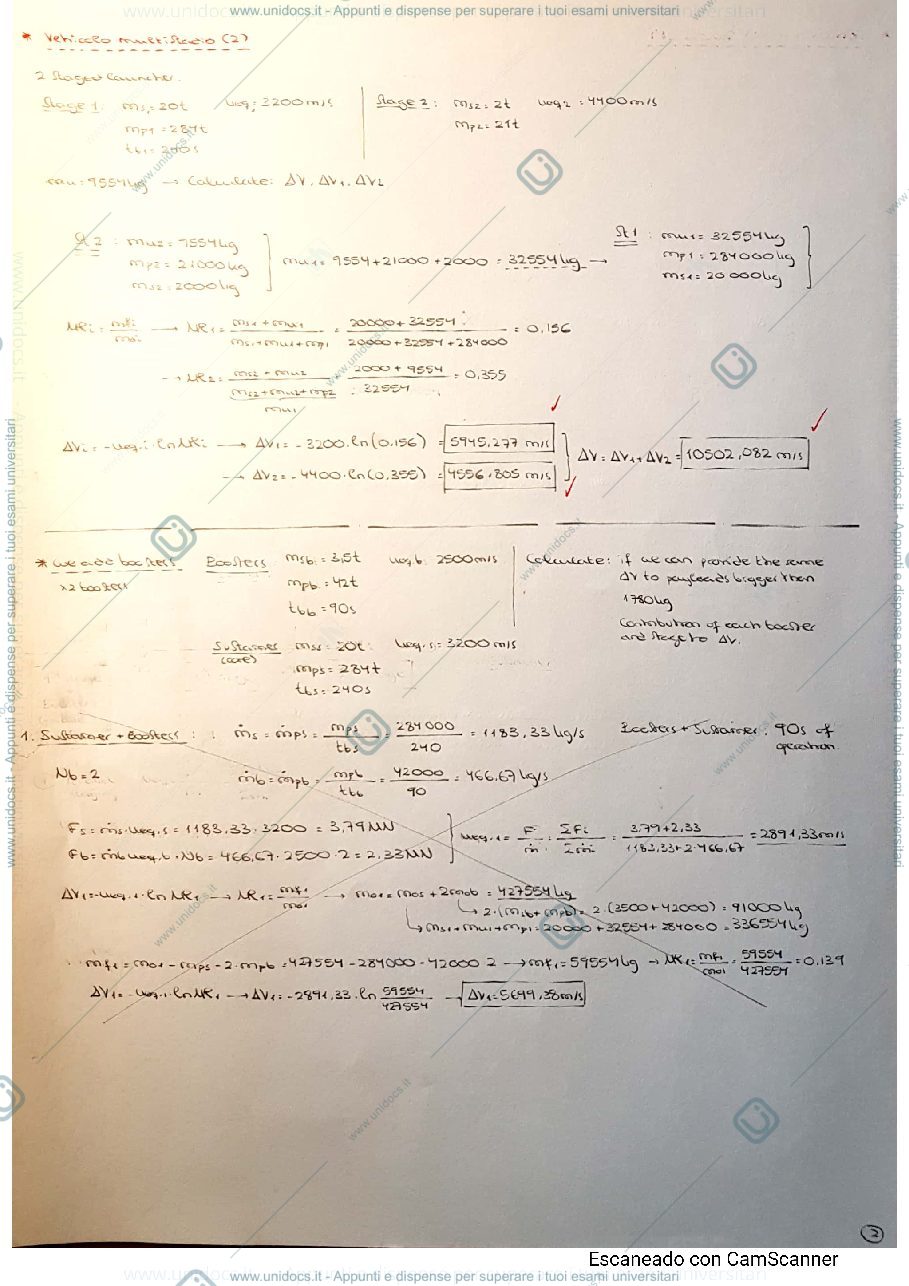 www.unidocs.it - Appunti e dispense per superare i tuoi esami universitari
* Vehicolo multistadio (2)
2 Stages Launcher.
Stage 1: ms1 = 20t ueq1 = 3200 m/s
mp1 = 284t
tb1 = 240s
Stage 2: ms2 = 2t ueq2 = 4400 m/s
mp2 = 21t
mu = 9554kg → Calculate: ΔV, ΔV1, ΔV2
St 2: mu2 = 9554kg
mp2 = 21000kg
ms2 = 2000kg
mu1 = 9554+21000+2000 = 32554kg →
St 1: mu1 = 32554kg
mp1 = 284000kg
ms1 = 20000kg
MRi = mfi/moi → MR1 = (ms1+mu1)/(ms1+mu1+mp1) = (20000+32554)/(20000+32554+284000) = 0,156
→ MR2 = (ms2+mu2)/(ms2+mu2+mp2) = (2000+9554)/32554 = 0,355
mu1
ΔVi = -ueq,i · ln MRi → ΔV1 = -3200·ln(0,156) = 5945,277 m/s
→ ΔV2 = -4400·ln(0,355) = 4556,805 m/s
ΔV = ΔV1+ΔV2 = 10502,082 m/s
* We add boosters
x2 boosters
Boosters msb = 3,5t ueq,b = 2500m/s
mpb = 42t
tbb = 90s
Calculate: if we can provide the same
ΔV to payloads bigger than
1780kg
Contribution of each booster
and stage to ΔV.
Sustainer (core) mss = 20t ueq,s = 3200 m/s
mps = 284t
tbs = 240s
1. Sustainer + Boosters: ṁs = ṁps = mps/tbs = 284000/240 = 1183,33 kg/s
Boosters + Sustainer: 90s of
operation
Nb = 2 ṁb = ṁpb = mpb/tbb = 42000/90 = 466,67 kg/s
Fs = ṁs·ueq,s = 1183,33·3200 = 3,79MN
Fb = ṁb·ueq,b·Nb = 466,67·2500·2 = 2,33MN
ueq,1 = F/ṁ = ΣFi/Σṁi = (3,79+2,33)/(1183,33+2·466,67) = 2891,33m/s
ΔV1 = -ueq,1·ln MR1 → MR1 = mf1/mo1 → mo1 = mos + 2mob = 427554kg
→ 2·(msb+mpb) = 2·(3500+42000) = 91000kg
→ ms1+mu1+mp1 = 20000+32554+284000 = 336554kg
mf1 = mo1 - mps - 2·mpb = 427554-284000-42000·2 → mf1 = 59554kg → MR1 = mf1/mo1 = 59554/427554 = 0,139
ΔV1 = -ueq,1·ln MR1 → ΔV1 = -2891,33·ln 59554/427554 → ΔV1 = 5699,38m/s
2
Escaneado con CamScanner
www.unidocs.it - Appunti e dispense per superare i tuoi esami universitari